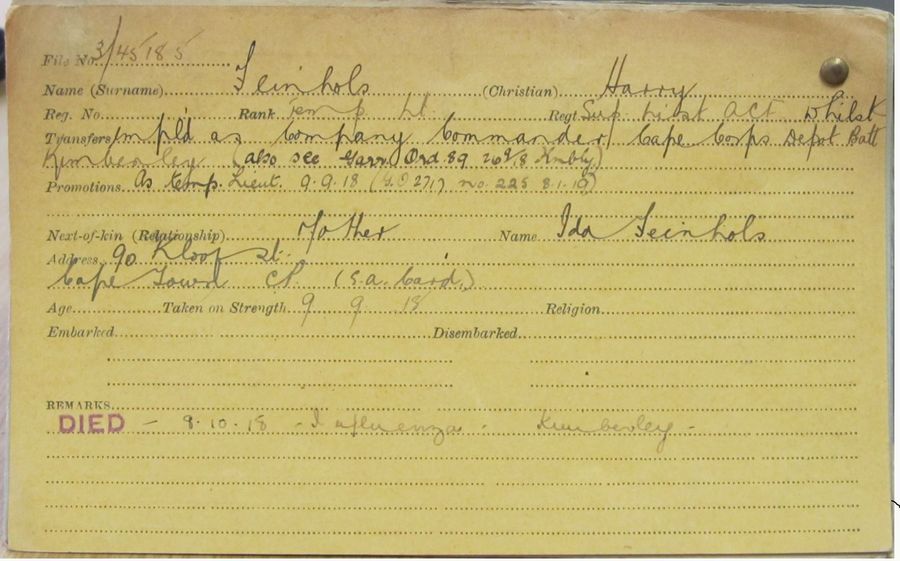 File No. 3/45185
Name (Surname) Feinhols (Christian) Harry
Reg. No. Rank Temp Lt. Regt Sup list act Whilst
Transfers Empl'd as Company Commander Cape Corps Depot Batt
Kimberley (also see Garr. Ord 89 26/9/8 Kmbly)
Promotions. As Temp. Lieut. 9.9.18 (G.O 2717 no. 225 8.1.19)
Next-of-kin (Relationship) Mother Name Ida Feinhols
Address 90 Kloof St.
Cape Town CP. (S.A. Card.)
Age Taken on Strength 9 9 18 Religion
Embarked Disembarked
REMARKS
DIED - 9.10.18 - Influenza - Kimberley -